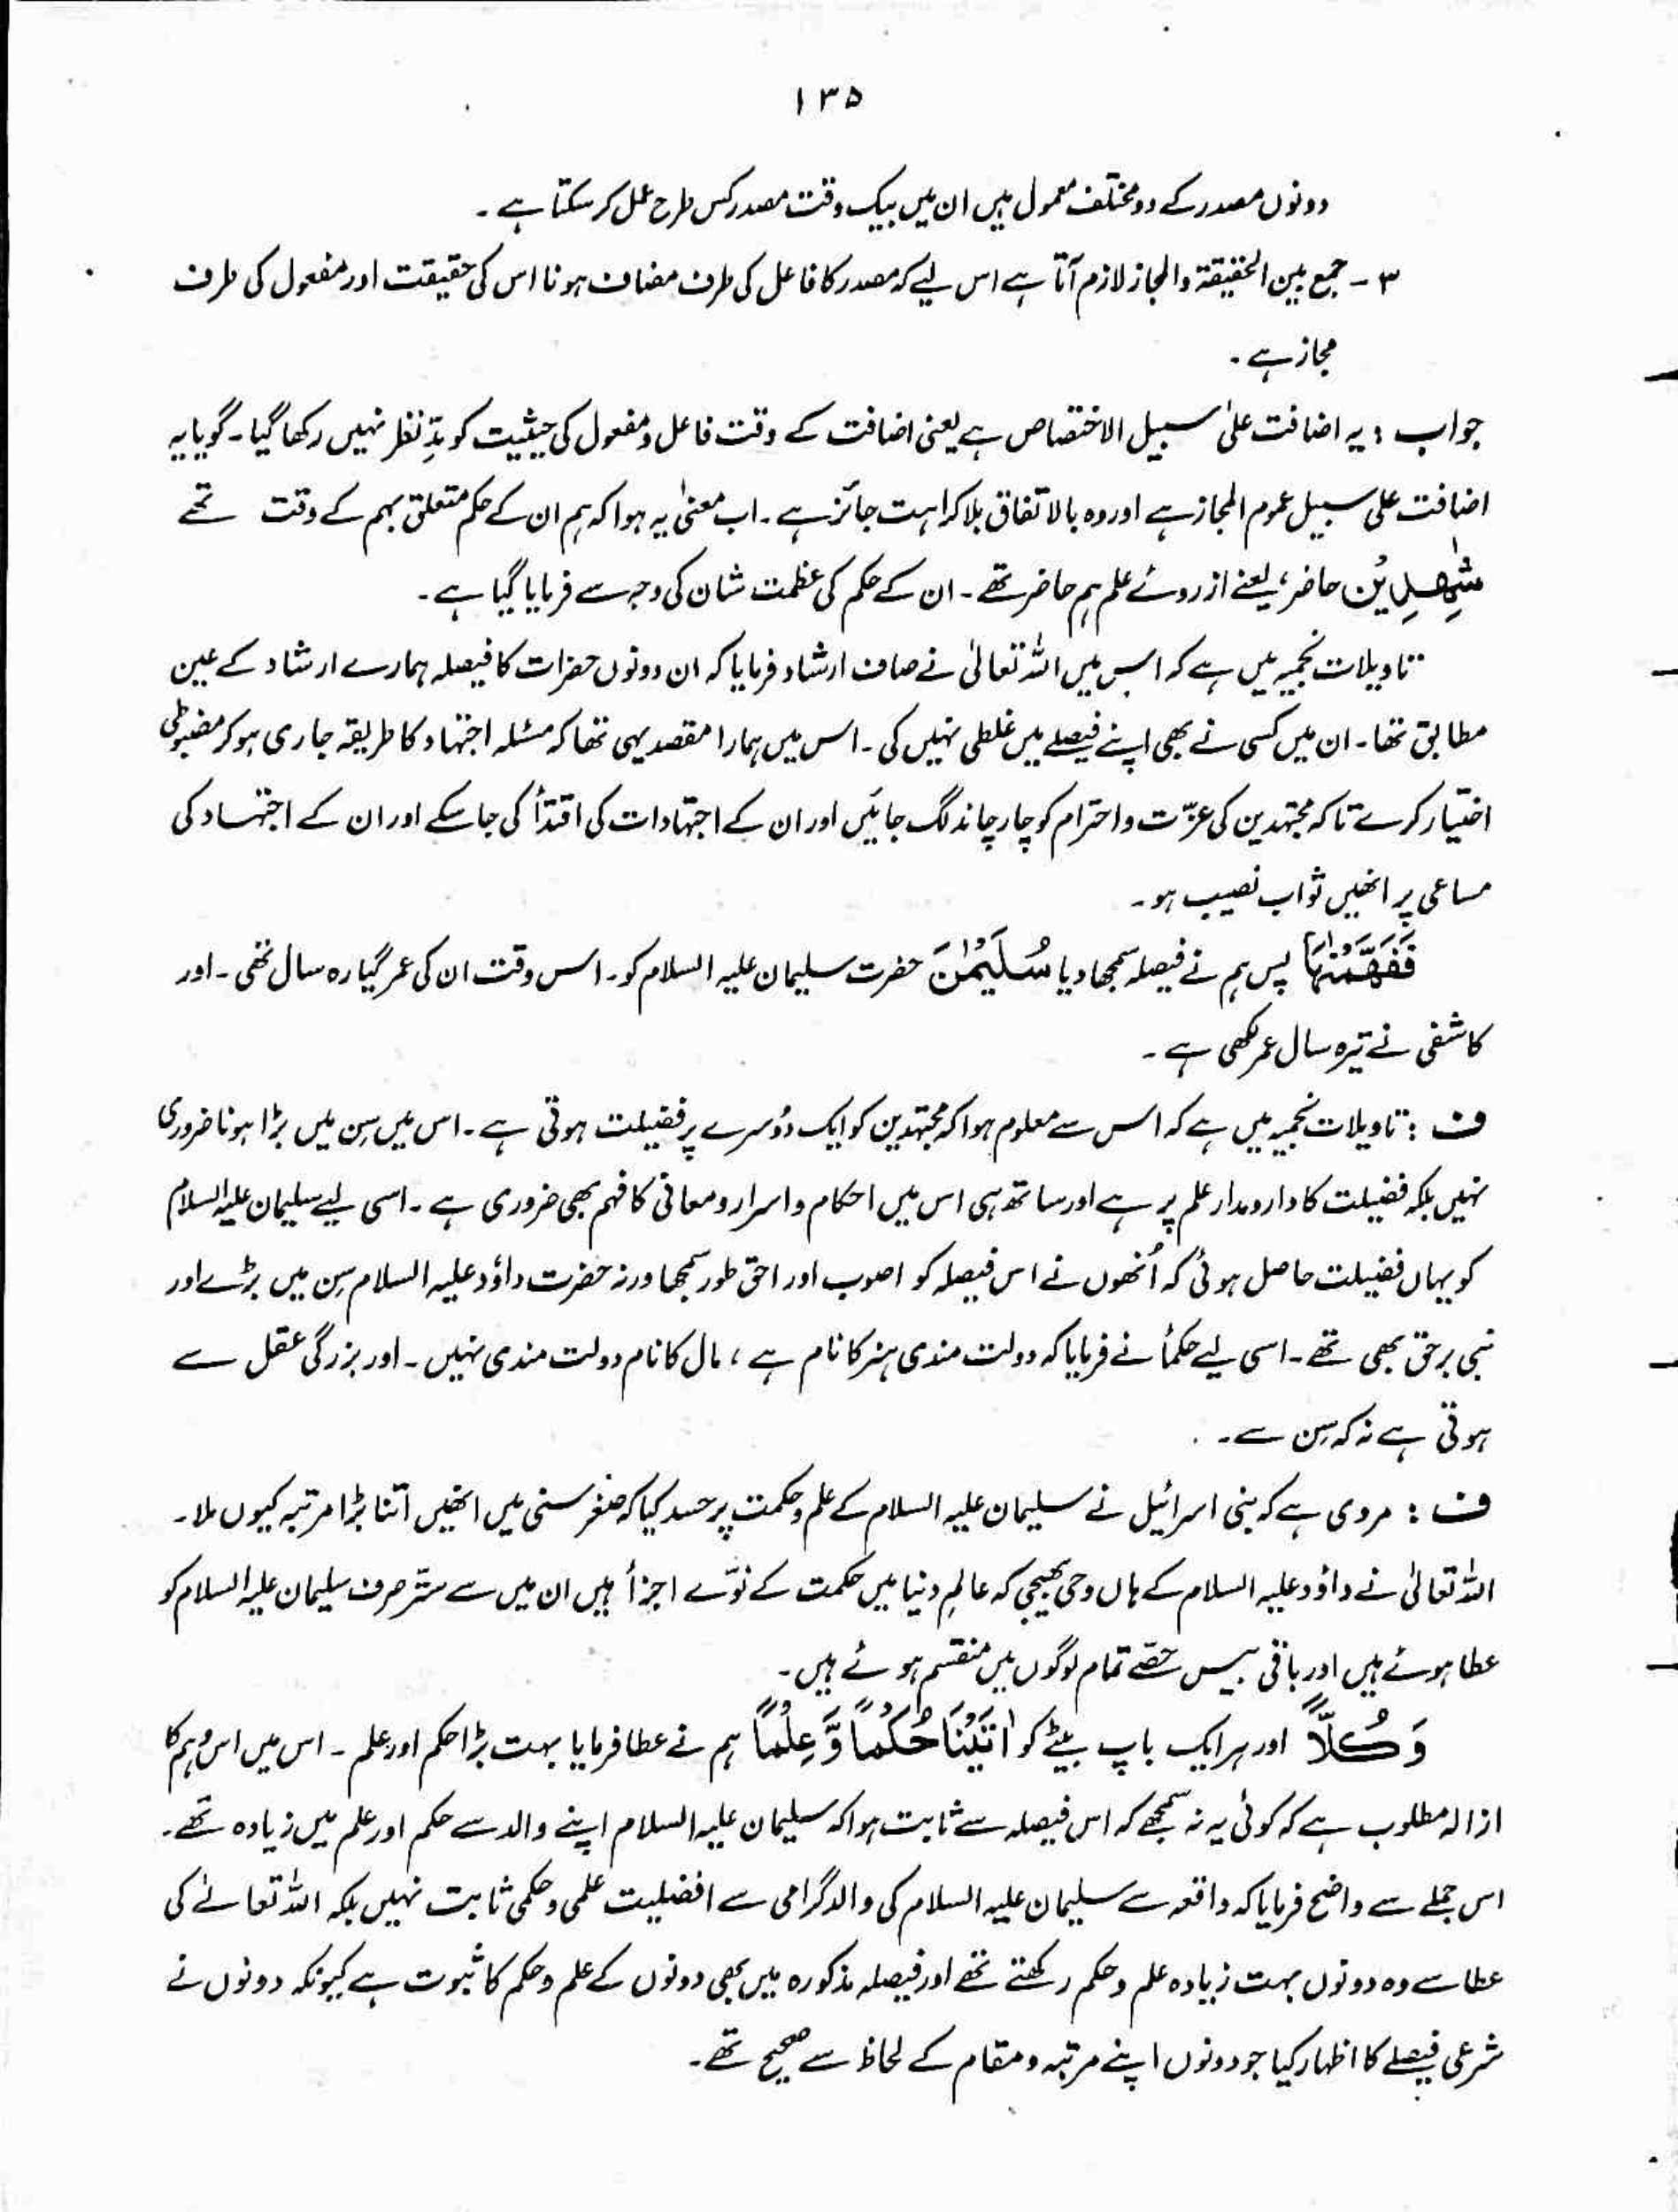 ۱۳۵
دونوں مصدر کے دو مختلف معمول ہیں ان میں بیک وقت مصدر کس طرح عمل کر سکتا ہے ۔
۳ - جمع بین الحقیقۃ والمجاز لازم آتا ہے اس لیے کہ مصدر کا فاعل کی طرف مضاف ہونا اس کی حقیقت اور مفعول کی طرف
مجاز ہے ۔
جواب : یہ اضافت علیٰ سبیل الاختصاص ہے یعنی اضافت کے وقت فاعل و مفعول کی حیثیت کو مدِّ نظر نہیں رکھا گیا ۔ گویا یہ
اضافت علی سبیل عموم المجاز ہے اور وہ بالاتفاق بلا کراہت جائز ہے ۔ اب معنیٰ یہ ہوا کہ ہم ان کے حکم متعلق بہم کے وقت تھے
شٰھِدِیْن حاضر ، یعنے از روئے علم ہم حاضر تھے ۔ ان کے حکم کی عظمت شان کی وجہ سے فرمایا گیا ہے ۔
تاویلات نجمیہ میں ہے کہ اس میں اللہ تعالیٰ نے صاف ارشاد فرمایا کہ ان دونوں حضرات کا فیصلہ ہمارے ارشاد کے عین
مطابق تھا ۔ ان میں کسی نے بھی اپنے فیصلے میں غلطی نہیں کی ۔ اس میں ہمارا مقصد یہی تھا کہ مسئلہ اجتہاد کا طریقہ جاری ہو کر مضبوطی
اختیار کرے تاکہ مجتہدین کی عزّت و احترام کو چار چاند لگ جائیں اور ان کے اجتہادات کی اقتدأ کی جا سکے اور ان کے اجتہاد کی
مساعی پر انھیں ثواب نصیب ہو ۔
فَفَهَّمْنٰهَا پس ہم نے فیصلہ سمجھا دیا سُلَیْمٰنَ حضرت سلیمان علیہ السلام کو ۔ اس وقت ان کی عمر گیارہ سال تھی ۔ اور
کاشفی نے تیرہ سال عمر لکھی ہے ۔
ف : تاویلات نجمیہ میں ہے کہ اس سے معلوم ہوا کہ مجتہدین کو ایک دُوسرے پر فضیلت ہوتی ہے ۔ اس میں سِن میں بڑا ہونا ضروری
نہیں بلکہ فضیلت کا دارومدار علم پر ہے اور ساتھ ہی اس میں احکام و اسرار و معانی کا فہم بھی ضروری ہے ۔ اسی لیے سلیمان علیہ السلام
کو یہاں فضیلت حاصل ہوئی کہ اُنھوں نے اس فیصلہ کو اصوب اور احق طور سمجھا ورنہ حضرت داؤد علیہ السلام سِن میں بڑے اور
نبی برحق بھی تھے ۔ اسی لیے حکمأ نے فرمایا کہ دولت مندی ہنر کا نام ہے ، مال کا نام دولت مندی نہیں ۔ اور بزرگی عقل سے
ہوتی ہے نہ کہ سِن سے ۔
ف : مروی ہے کہ بنی اسرائیل نے سلیمان علیہ السلام کے علم و حکمت پر حسد کیا کہ صغر سنی میں انھیں اتنا بڑا مرتبہ کیوں ملا ۔
اللہ تعالیٰ نے داؤد علیہ السلام کے ہاں وحی بھیجی کہ عالمِ دنیا میں حکمت کے نوّے اجزأ ہیں ان میں سے ستّر صرف سلیمان علیہ السلام کو
عطا ہوئے ہیں اور باقی بیس حصّے تمام لوگوں میں منقسم ہوئے ہیں ۔
وَ كُلًّا اور ہر ایک باپ بیٹے کو اٰتَیْنَا حُكْمًا وَّ عِلْمًا ہم نے عطا فرمایا بہت بڑا حکم اور علم ۔ اس میں اس وہم کا
ازالہ مطلوب ہے کہ کوئی یہ نہ سمجھے کہ اس فیصلہ سے ثابت ہوا کہ سلیمان علیہ السلام اپنے والد سے حکم اور علم میں زیادہ تھے ۔
اس جملے سے واضح فرمایا کہ واقعہ سے سلیمان علیہ السلام کی والد گرامی سے افضلیت علمی و حکمی ثابت نہیں بلکہ اللہ تعالےٰ کی
عطا سے وہ دونوں بہت زیادہ علم و حکم رکھتے تھے اور فیصلہ مذکورہ میں بھی دونوں کے علم و حکم کا ثبوت ہے کیونکہ دونوں نے
شرعی فیصلے کا اظہار کیا جو دونوں اپنے مرتبہ و مقام کے لحاظ سے صحیح تھے ۔